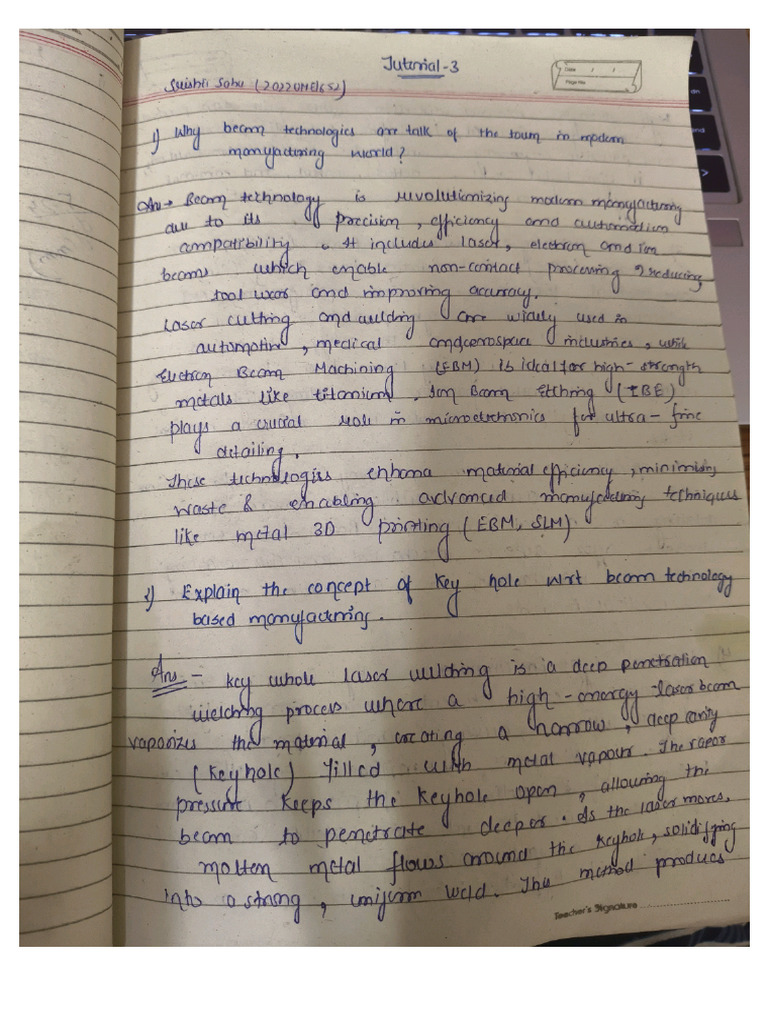 Tutorial-3
Date / /
Page No.
Srishti Sahu (2022UME1652)
1) Why beam technologies are talk of the town in modern
manufacturing world?
Ans → Beam technology is revolutionizing modern manufacturing
due to its precision, efficiency and automation
compatibility. It includes laser, electron and ion
beams which enable non-contact processing reducing
tool wear and improving accuracy.
Laser cutting and welding are widely used in
automotive, medical and aerospace industries, while
Electron Beam Machining (EBM) is ideal for high-strength
metals like titanium. Ion Beam Etching (IBE)
plays a crucial role in microelectronics for ultra-fine
detailing.
These technologies enhance material efficiency, minimising
waste & enabling advanced manufacturing techniques
like metal 3D printing (EBM, SLM).
2) Explain the concept of Key hole wrt beam technology
based manufacturing.
Ans - Key whole laser welding is a deep penetration
welding process where a high-energy laser beam
vaporizes the material, creating a narrow, deep cavity
(keyhole) filled with metal vapour. The vapor
pressure keeps the keyhole open, allowing the
beam to penetrate deeper. As the laser moves,
molten metal flows around the keyhole, solidifying
into a strong, uniform weld. This method produces
Teacher's Signature